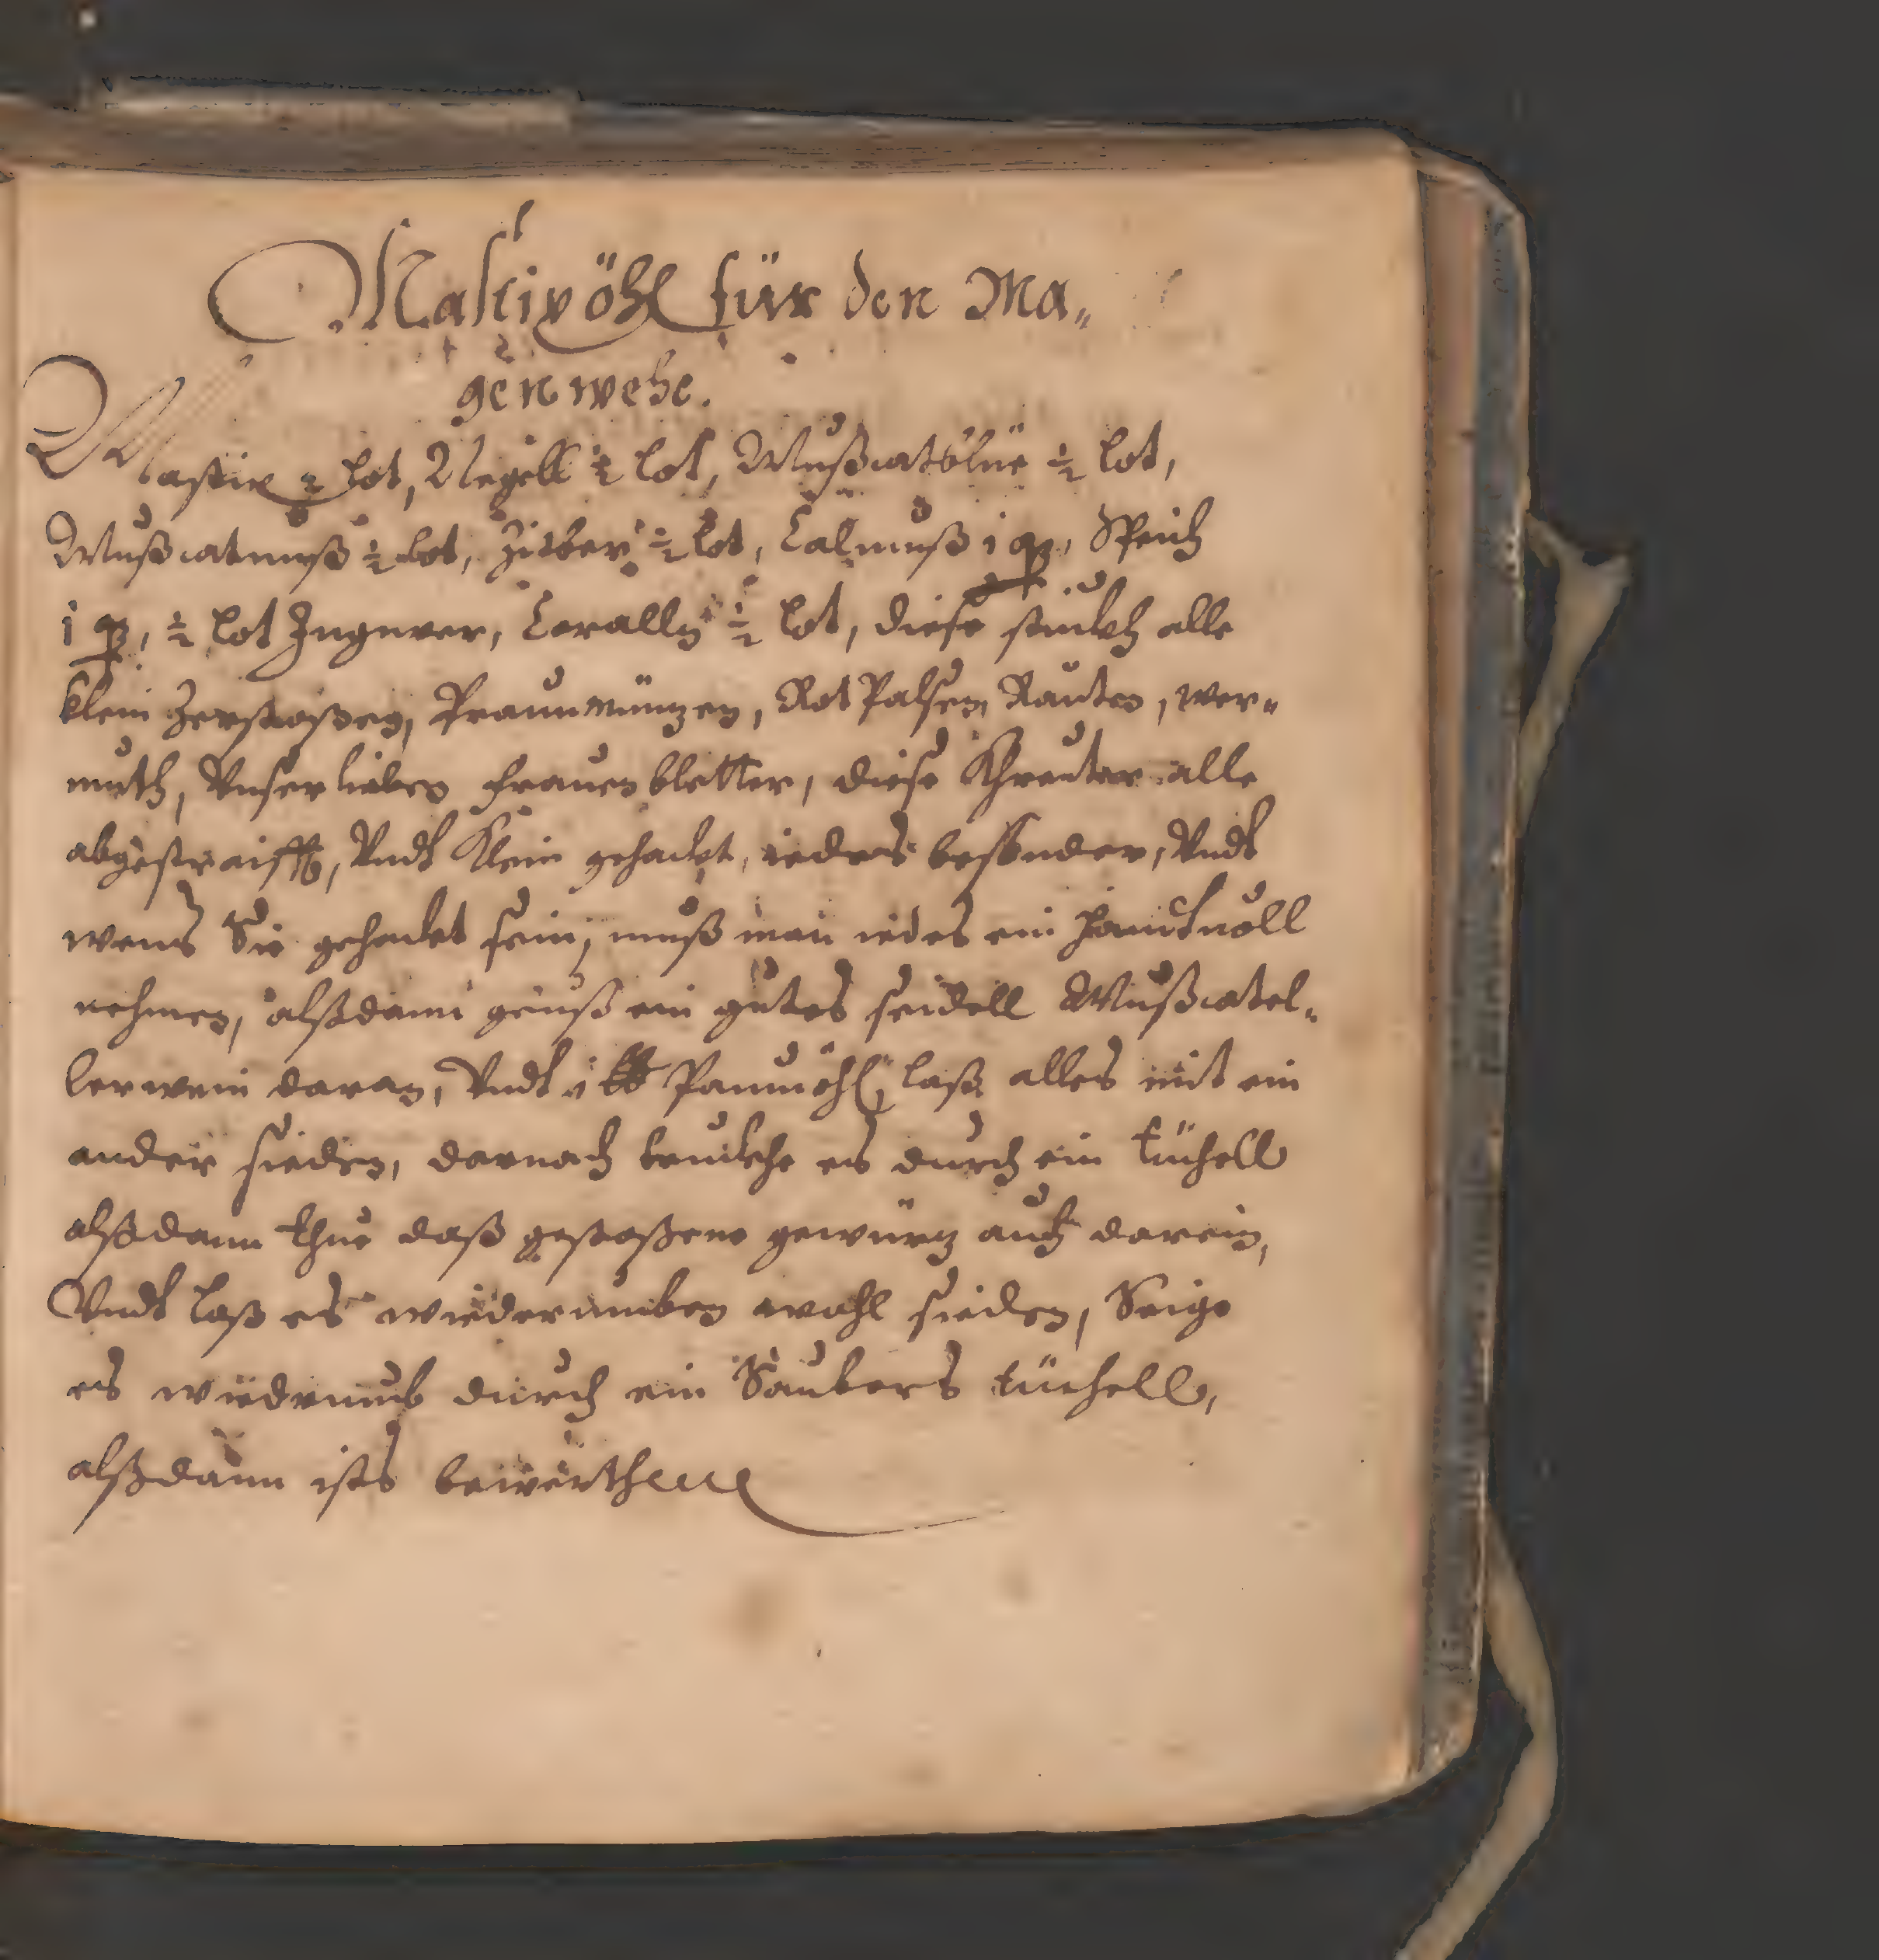 Mastixöhl für den Ma„
genwehe.
Mastix ½ lot, Negell ½ lot, Mußcatblüe ½ lot,
Mußcatnuß ½ lot, Zitber ½ lot, Calmuß 1 q, Speich
1 q, ½ lot Ingwer, Coralln ½ lot, diese stuckh alle
klein Zerstoßen, Praunmüntzen, Rot Palsen, Rauten, wer„
muth, Vnser lieben frauen bletter, diese Khreuter alle
abgestraifft, Vndt Klein gehackt, iedes besonder, Vndt
wens Sie gehacket sein, muß man iedes ein handtvoll
nehmen, alßdann geuß ein gutes seidell Mußcatel„
lerwein daran, Vndt 1 ℔ Paumöhl, laß alles mit ein
ander sieden, darnach truckhe es durch ein tüchell
alßdann thue daß gestoßene gewürtz auch darein,
Vndt laß es wiederumben wohl sieden, Seige
es wiedrumb durch ein Saubers tüchell,
alßdann ists bewerth